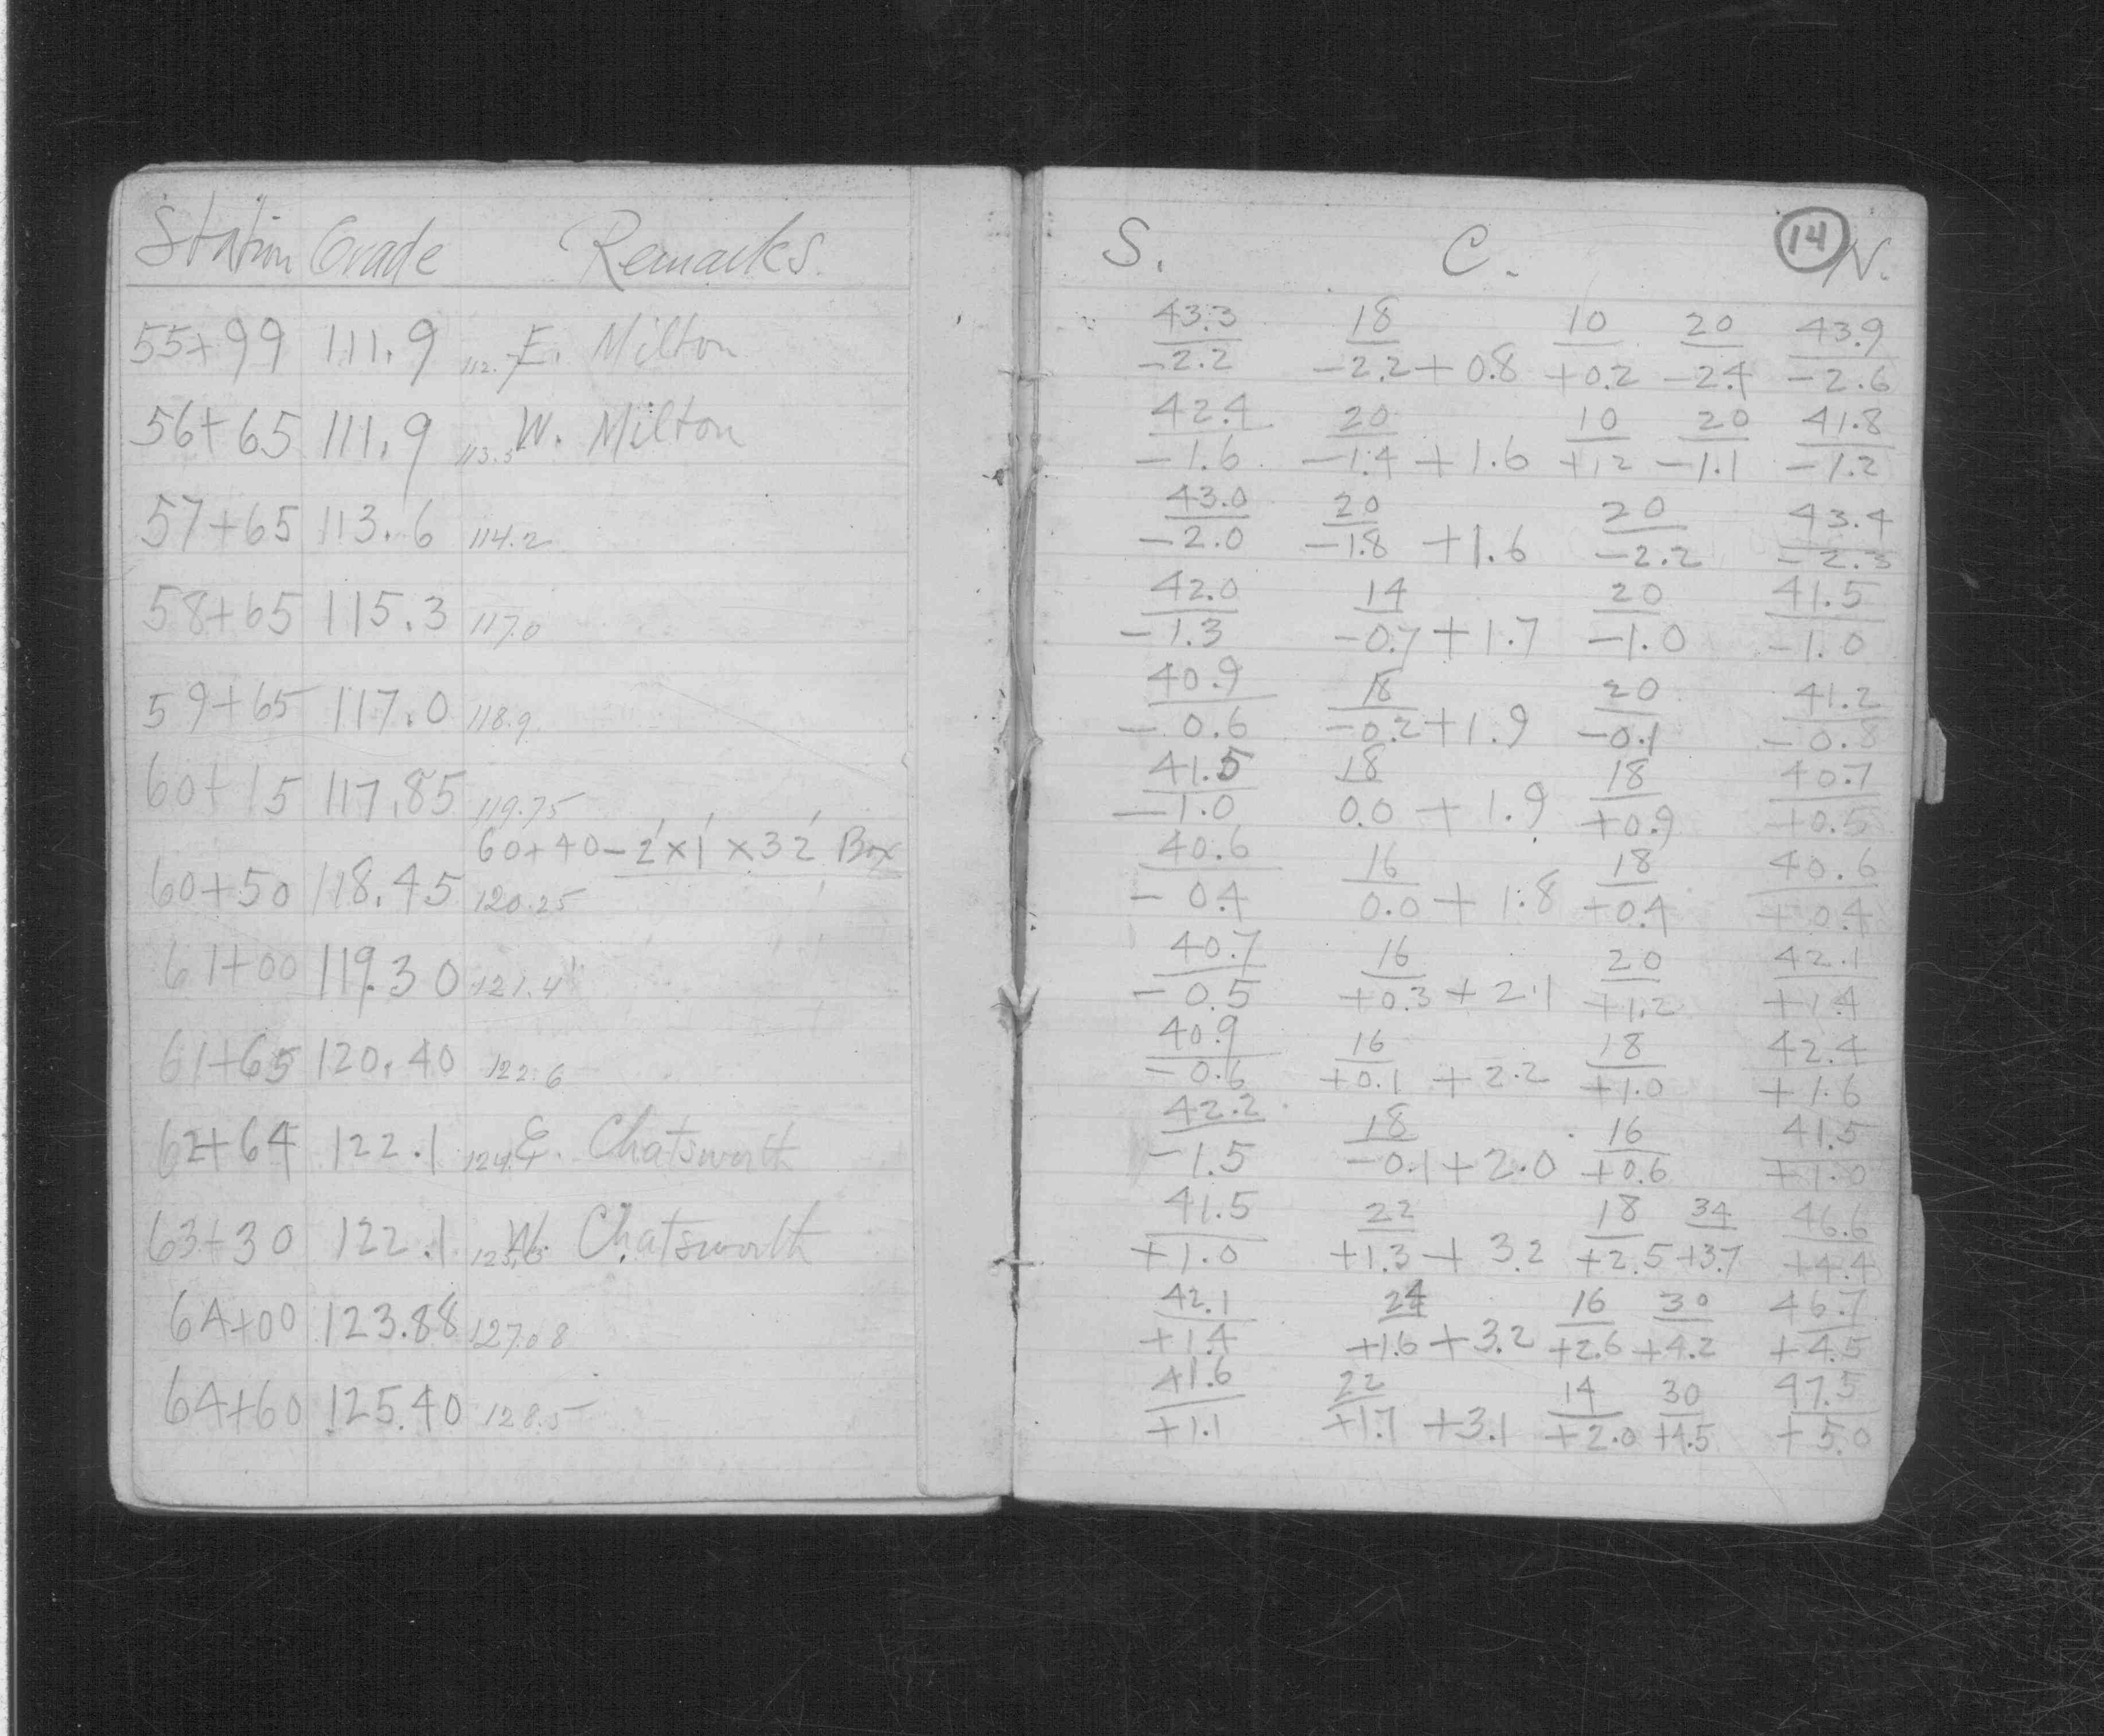 Station Grade Remarks.
55+99 111.9 112.7 E. Milton
56+65 111.9 113.5 W. Milton
57+65 113.6 114.2
58+65 115.3 117.0
59+65 117.0 118.9
60+15 117.85 119.75
60+40-2'x1'x32' Box
60+50 118.45 120.25
61+00 119.30 121.4
61+65 120.40 122.6
62+64 122.1 124.1 E. Chatsworth
63+30 122.1 125.3 W. Chatsworth
64+00 123.88 127.08
64+60 125.40 128.5
14
S. C. N.
43.3 18 10 20 43.9
-2.2 -2.2 +0.8 +0.2 -2.4 -2.6
42.4 20 10 20 41.8
-1.6 -1.4 +1.6 +1.2 -1.1 -1.2
43.0 20 20 43.4
-2.0 -1.8 +1.6 -2.2 -2.3
42.0 14 20 41.5
-1.3 -0.7 +1.7 -1.0 -1.0
40.9 18 20 41.2
-0.6 -0.2 +1.9 -0.1 -0.8
41.5 18 18 40.7
-1.0 0.0 +1.9 +0.9 +0.5
40.6 16 18 40.6
-0.4 0.0 +1.8 +0.4 +0.4
40.7 16 20 42.1
-0.5 +0.3 +2.1 +1.2 +1.4
40.9 16 18 42.4
-0.6 +0.1 +2.2 +1.0 +1.6
42.2 18 16 41.5
-1.5 -0.1 +2.0 +0.6 +1.0
41.5 22 18 34 46.6
+1.0 +1.3 +3.2 +2.5 +3.7 +4.4
42.1 24 16 30 46.7
+1.4 +1.6 +3.2 +2.6 +4.2 +4.5
41.6 22 14 30 47.5
+1.1 +1.7 +3.1 +2.0 +4.5 +5.0